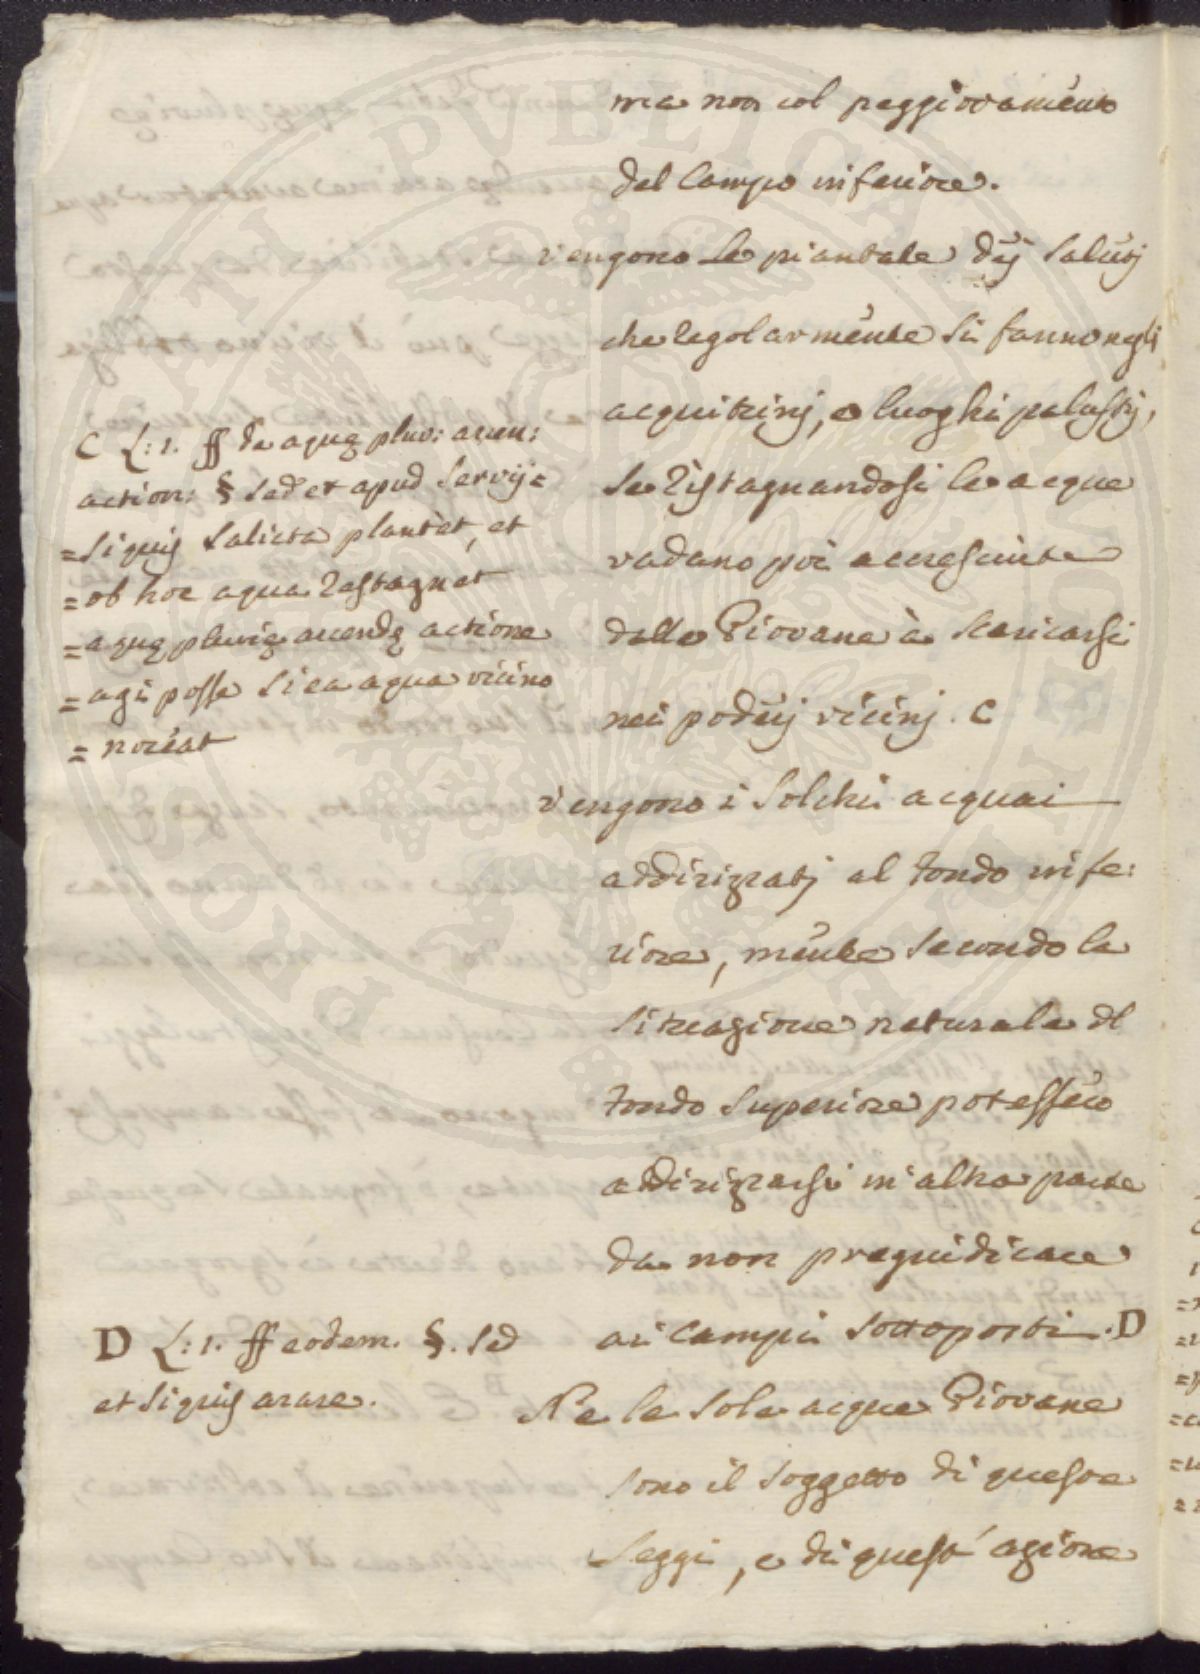 ma non col peggioramento
del Campo inferiore.
vengono le piantate dij Salicij
che regolarmente si fanno negli
acquitrinj, e luoghi palustrj,
se ristagnandosi le acque
vadano poi accresciute
dalle Piovane à scaricarsi
nei poderj vicinj. C
C L: 1. ff de aquę pluv: arcen:
action: § sed et apud Servij=
=Si quis Salicta plantet, et
=ob hoc aqua restagnet
=aquę pluvię arcendę actione
=agi posse si ea aqua vicino
=noceat
vengono i Solchi acquai
addirizzatj al fondo infe:
riore, mentre secondo la
situazione naturale dl
fondo superiore potessero
addirizzarsi in altra parte
da non pregiudicare
ai Campi sottoposti. D
D L: 1. ff eodem. §. Sed
et si quis arare.
Ne le sole acque Piovane
sono il soggetto di queste
Leggi, e di quest' azione
PROSPERITATI PVBLICAE AVGENDAE